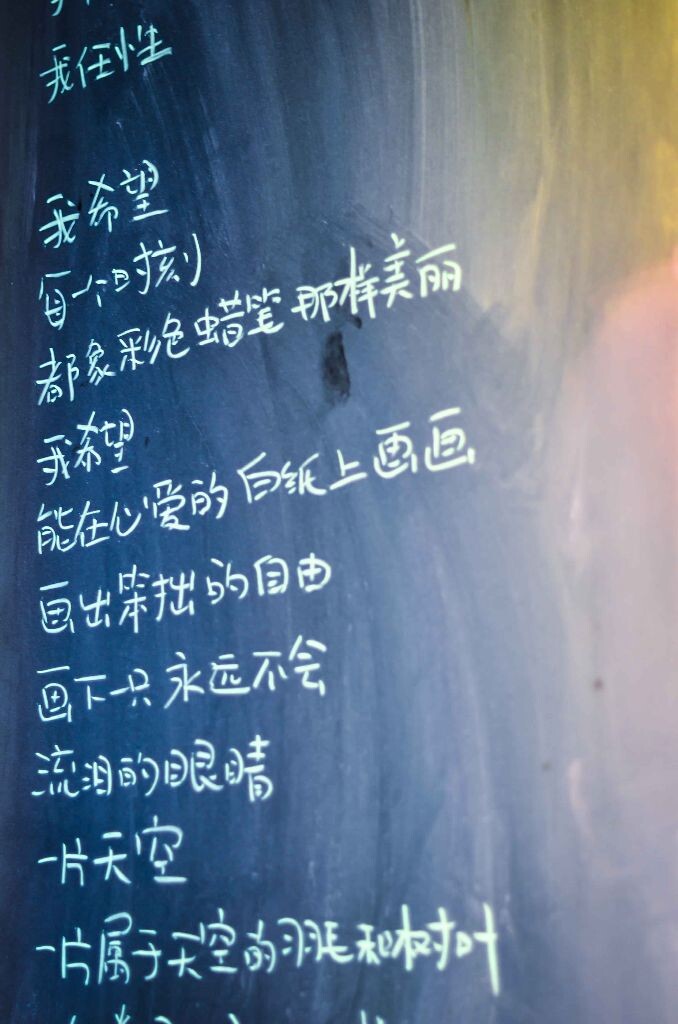 我任性
我希望
每一个时刻
都象彩色蜡笔那样美丽
我希望
能在心爱的白纸上画画
画出笨拙的自由
画下一只永远不会
流泪的眼睛
一片天空
一片属于天空的羽毛和树叶